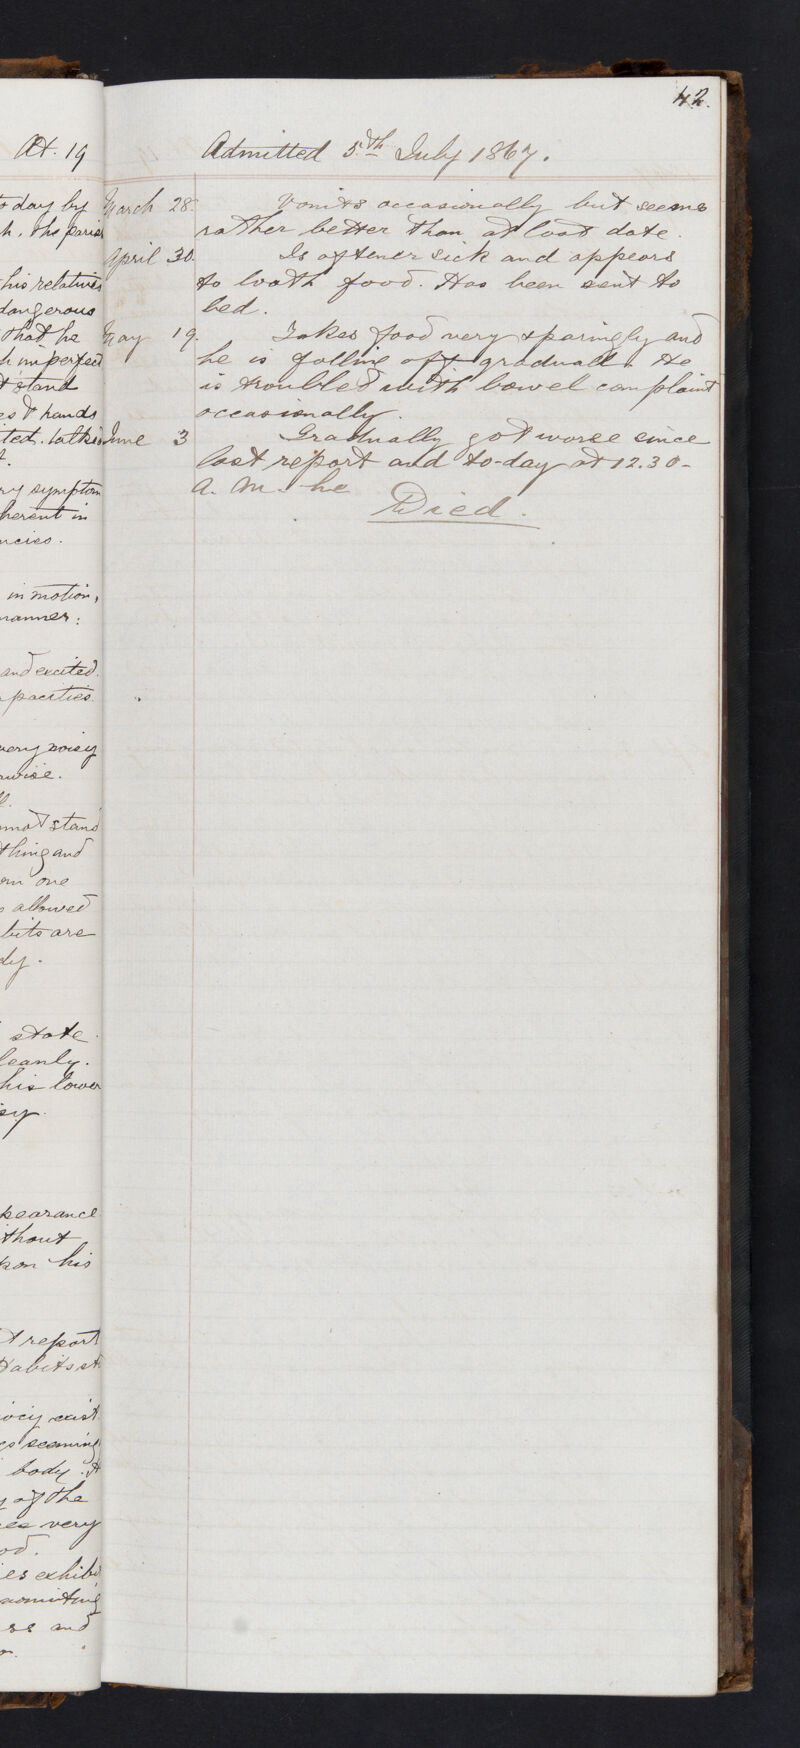 Æt. 19
to day by
h. The parish
his relatives
dangerous
that he
h imperfect
t stand
es & hands
ted. talks
t.
ry symptom
herent in
ncies.
in motion,
manner:
and excited.
pacities.
very noisy
rwise.
nnot stand
thing and
om one
s allowed
bits are
dy.
state.
leanly.
his lower
sy.
pearance
thout
pon his
t report
Habits st
iocy exist
es seeming
body. A
y of the
ees very
od.
ies exhibi
vomiting
ss and
42.
Admitted 5th July 1867.
March 28. Vomits occasionally but seems
rather better than at last date.
April 30. Is oftener sick and appears
to loath food. Has been sent to
bed.
May 19. Takes food very sparingly and
he is falling off gradually. He
is troubled with bowel complaint
occasionally.
June 3 Gradually got worse since
last report and to-day at 12.30-
a. m. he
Died.